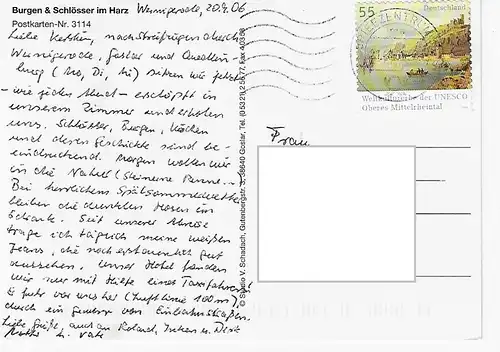 Burgen & Schlösser im Harz
Postkarten-Nr. 3114
Wernigerode, 20.9.06
Liebe Kerstin, nach Streifzügen durch
Wernigerode, Goslar und Quedlin-
burg (Mo, Di, Mi) sitzen wir jetzt
- wie jeden Abend - erschöpft in
unserem Zimmer und erholen
uns. Schlösser, Burgen, Kirchen
und deren Geschichte sind be-
eindruckend. Morgen wollen wir
in die Natur (Steinerne Renne...)
Bei herrlichem Spätsommerwetter
bleiben die dunklen Hosen im
Schrank. Seit unserer Abreise
trage ich täglich meine weißen
Jeans, die noch erstaunlich gut
aussehen. Unser Hotel fanden
wir nur mit Hilfe eines Taxifahrers!
Er fuhr vor uns her (Luftlinie 100 m)
durch ein Gewirr von Einbahnstraßen.
Liebe Grüße, auch an Roland, u.
Mutti u. Vati
© Studio V. Schadach, Gutenbergstr. 38640 Goslar, Tel. (05321)
55
Deutschland
BRIEFZENTRUM
Welterbe der UNESCO
Oberes Mittelrheintal
Frau